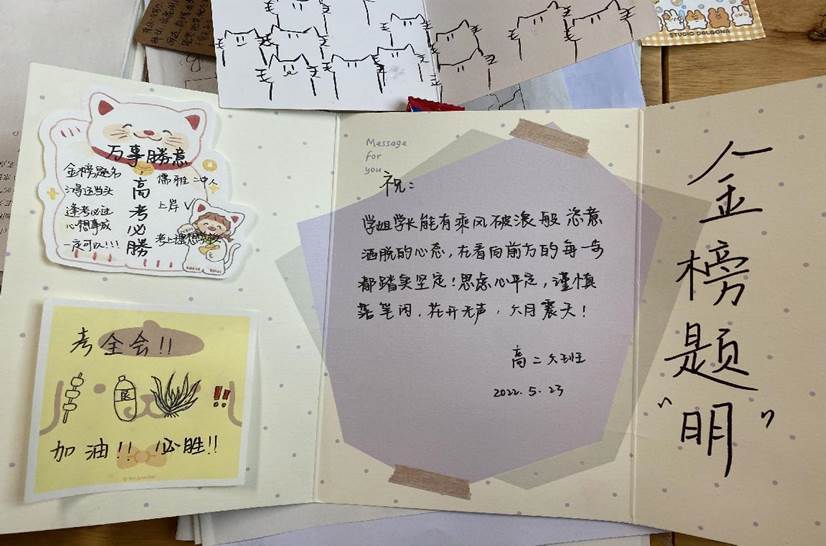 万事勝意
金榜题名
鸿运当头
逢考必过
心想事成
一定可以!!!
高考必勝
儒雅二中人
上岸√
考上理想学校
考全会!!
医
!!
加油!! 必胜!!
Message
for
you
祝:
学姐学长能有乘风破浪般恣意
洒脱的心态,在看向前方的每一步
都踏实坚定!思虑心平定,谨慎
落笔间.花开无声,六月震天!
高二六班
2022.5.23
金榜题“明”